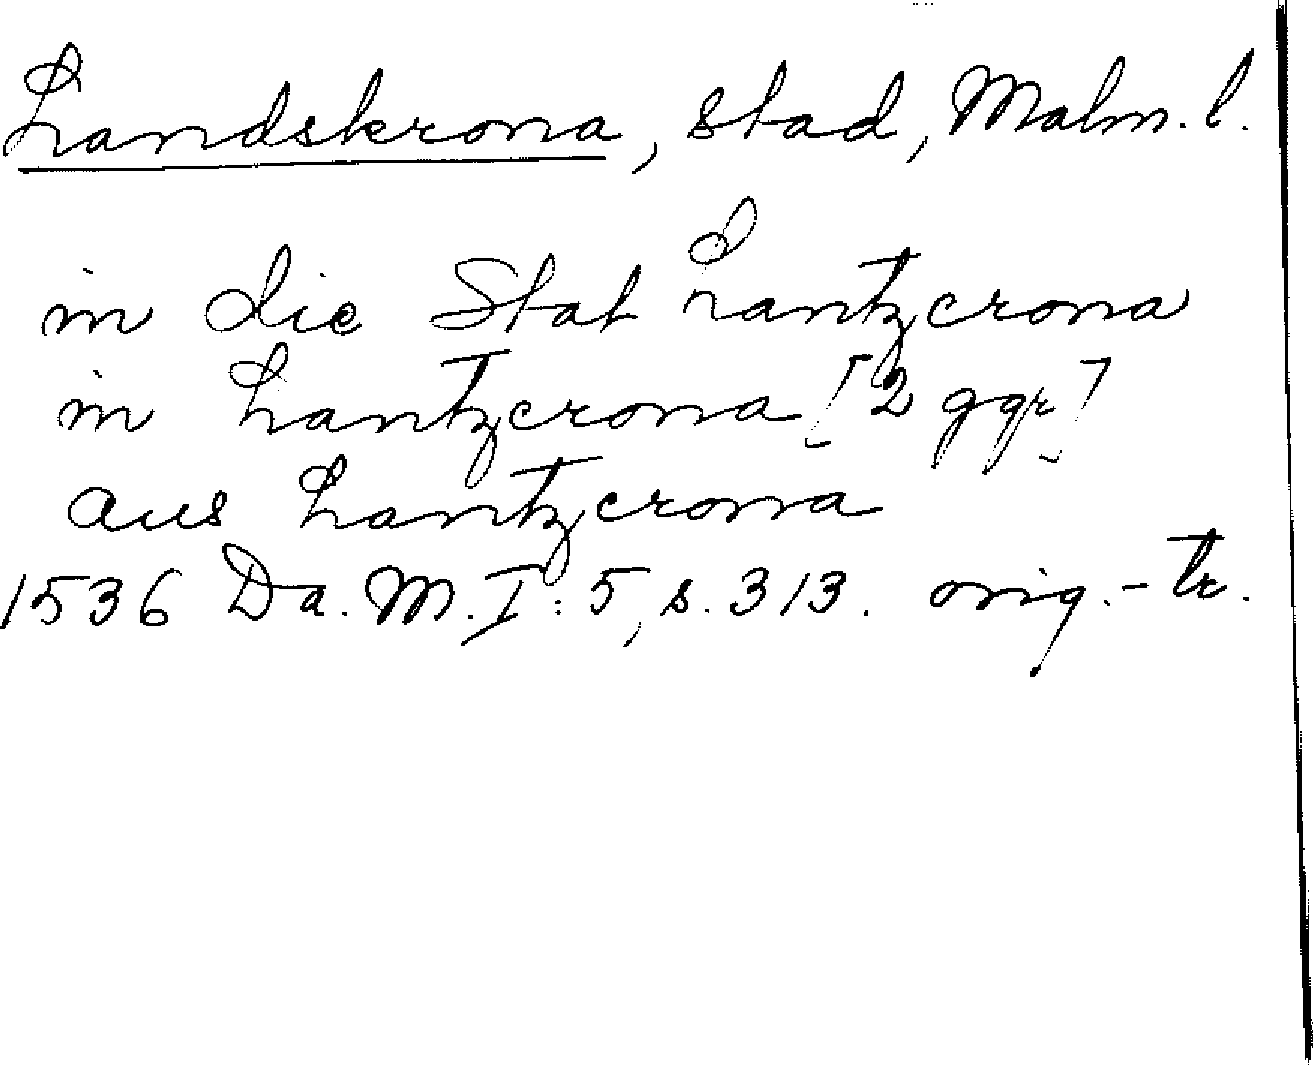 Landskrona, stad, Malm. l.
in die Stat Lantzcrona
in Lantzcrona [2 ggr]
aus Lantzcrona
1536 Da. M. I: 5, s. 313. orig.-tr.